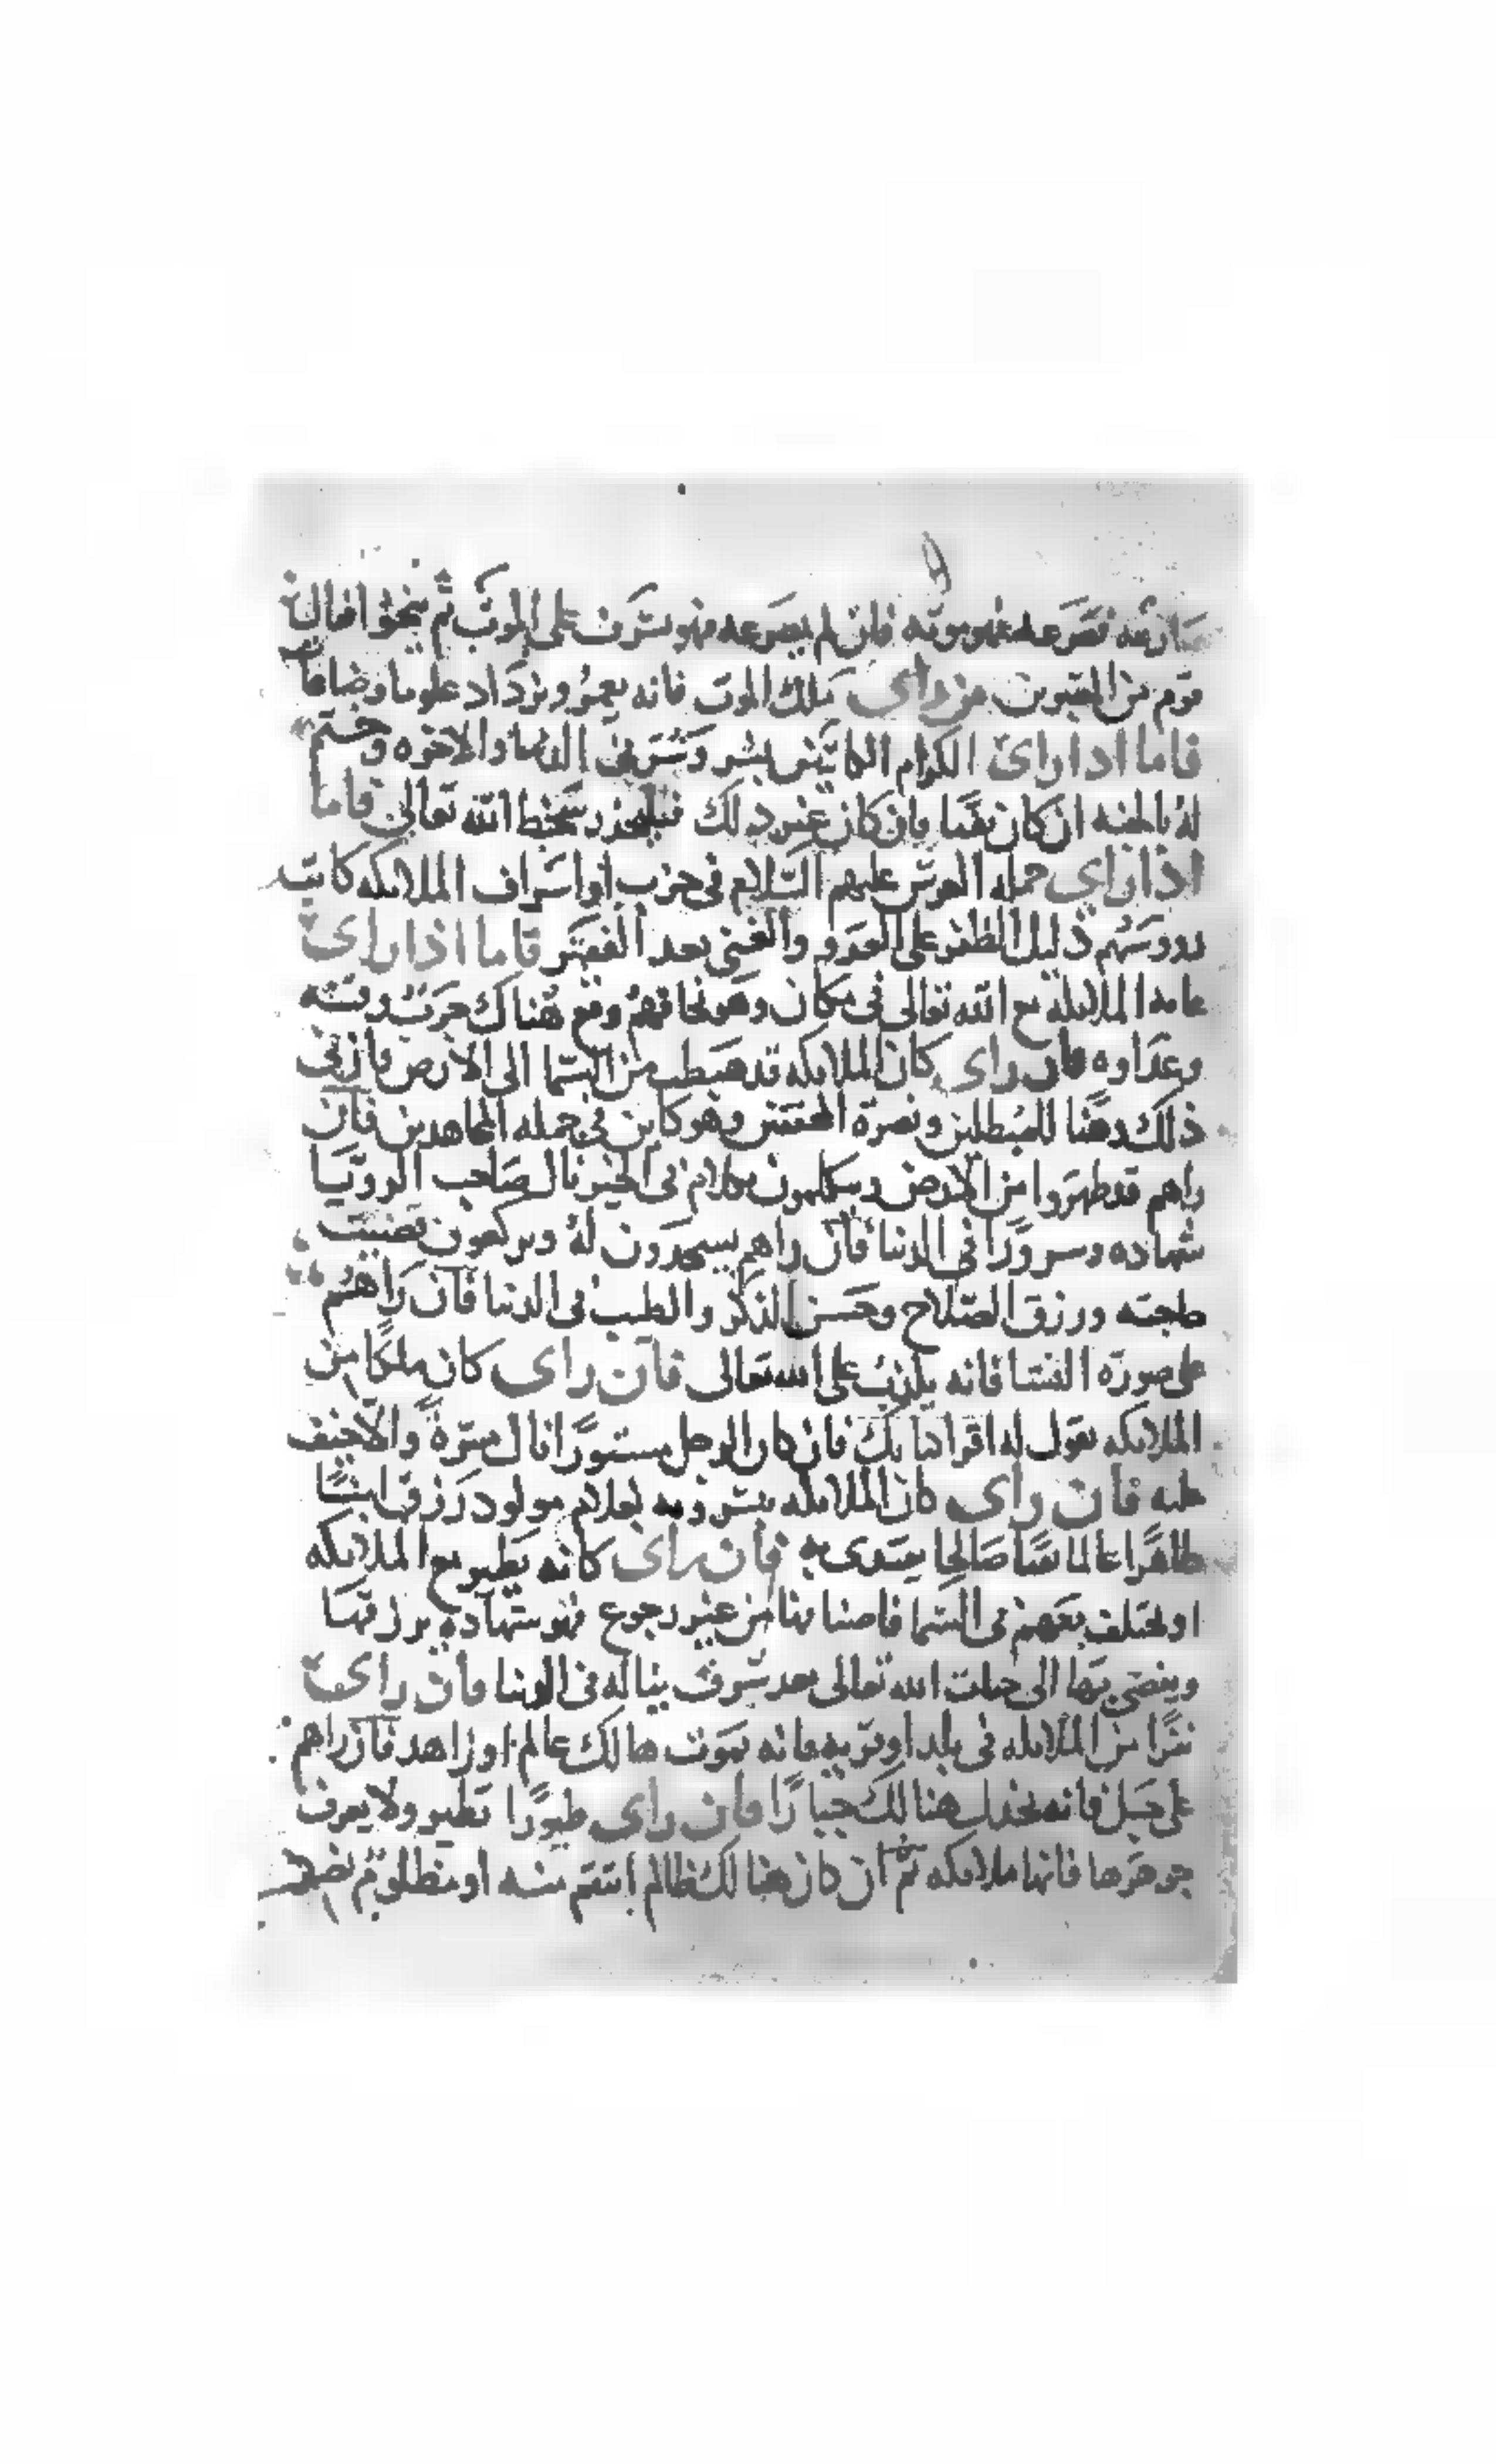 صارعه فصرعه فهو موته فان لم يصرعه فهو يشرف على الموت ثم ينجوا فقال
قوم من المعبرين من راى ملك الموت فانه يعمر ويزداد علوما
فاما ادا راى الكرام الكاتبين بشر وشر فى الدنيا والاخره وختم
له بالجنه ان كان تقيا وان كان غير دلك فليحذر سخط الله تعالى فاما
اذا راى حمله العرش عليهم السلام فى حزب او اشراف الملايكه
دليل الظفر على العدو والغنى بعد الفقر فاما اذا راى
الملايكه مع الله تعالى فى مكان وهو يخافهم وقع هناك حرب وفتنه
وعداوه فان راى كان الملايكه قد هبطت من السما الى الارض فان فى
ذلك وهنا للمبطلين ونصرة المحقين وهو كاين فى جمله المجاهدين فان
راهم قد ظهروا من الارض ويكلمون بكلام فى الخير نال صاحب الرويا
شهاده وسرورا فى الدنيا فان راهم يسجدون له ويركعون قضيت
حاجته ورزق الصلاح وحسن الذكر والطيب فى الدنيا فان راهم
على صورة النسا فانه يكذب على الله تعالى فان راى كان ملكا من
الملايكه يقول له اقرا كتابك فان كان الرجل مستورا نال مسرة والا خيف
عليه فان راى كان الملايكه يبشرونه بغلام مولود رزق ابنا
طاهرا عالما تقيا صالحا يقتدى به فان راى كانه يطير مع الملايكه
او يختلف بعضهم فى السما من غير رجوع فهو شهادة يرزقها
ويفضى بها الى الله تعالى بعد شرف يناله فى الدنيا فان راى
من الملايكه فى بلد او قريه فانه يموت هنالك عالم او زاهد فان راهم
على جبل فانه يخذل هنالك جبارا فان راى طيورا تطير ولا يعرف
جوهرها فانها ملايكه ثم ان كان هنالك ظالم انتقم منه او مظلوم